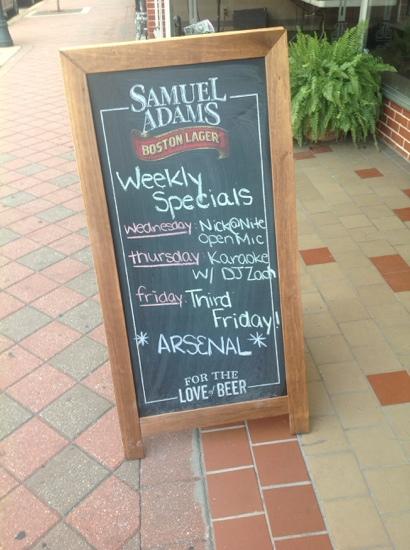 SAMUEL
ADAMS
BOSTON LAGER
Weekly
Specials
wednesday: Nick@Nite
Open Mic
thursday: Karaoke
w/ DJ Zach
friday: Third
Friday!
* ARSENAL *
FOR THE
LOVE of BEER